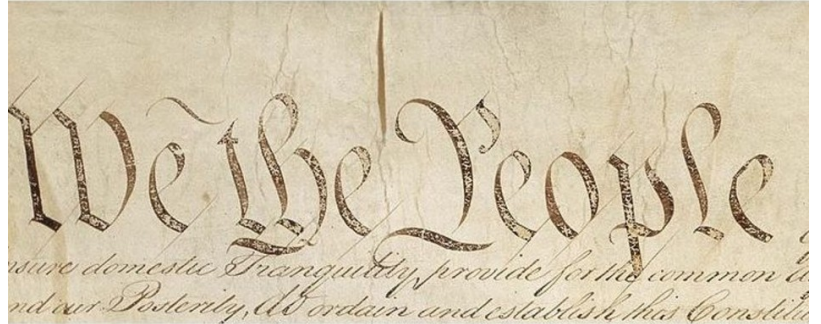 We the People
nsure domestic Tranquility, provide for the common
nd our Posterity, do ordain and establish this Constitu